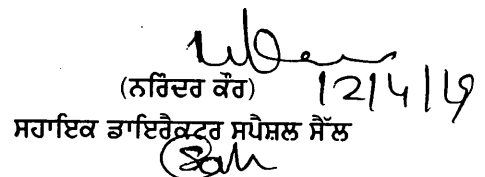 (ਨਰਿੰਦਰ ਕੌਰ)
ਸਹਾਇਕ ਡਾਇਰੈਕਟਰ ਸਪੈਸ਼ਲ ਸੈੱਲ